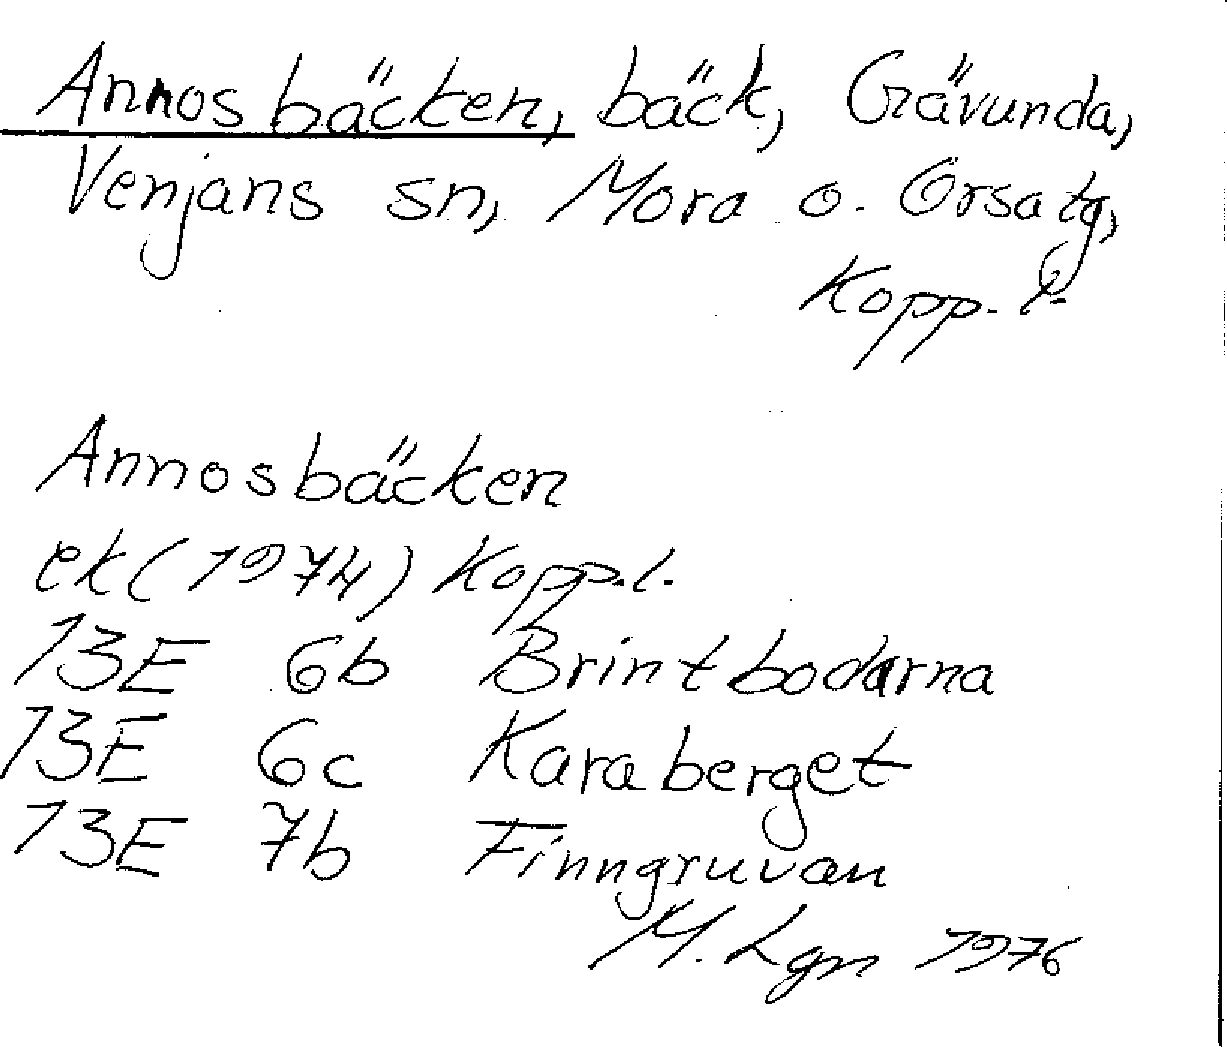 Annosbäcken, bäck, Grävunda,
Venjans sn, Mora o. Orsa tg,
Kopp. l.
Annosbäcken
ek (1974) Kopp.l.
13E 6b Brintbodarna
13E 6c Karaberget
13E 7b Finngruvan
M. Lgn 1976